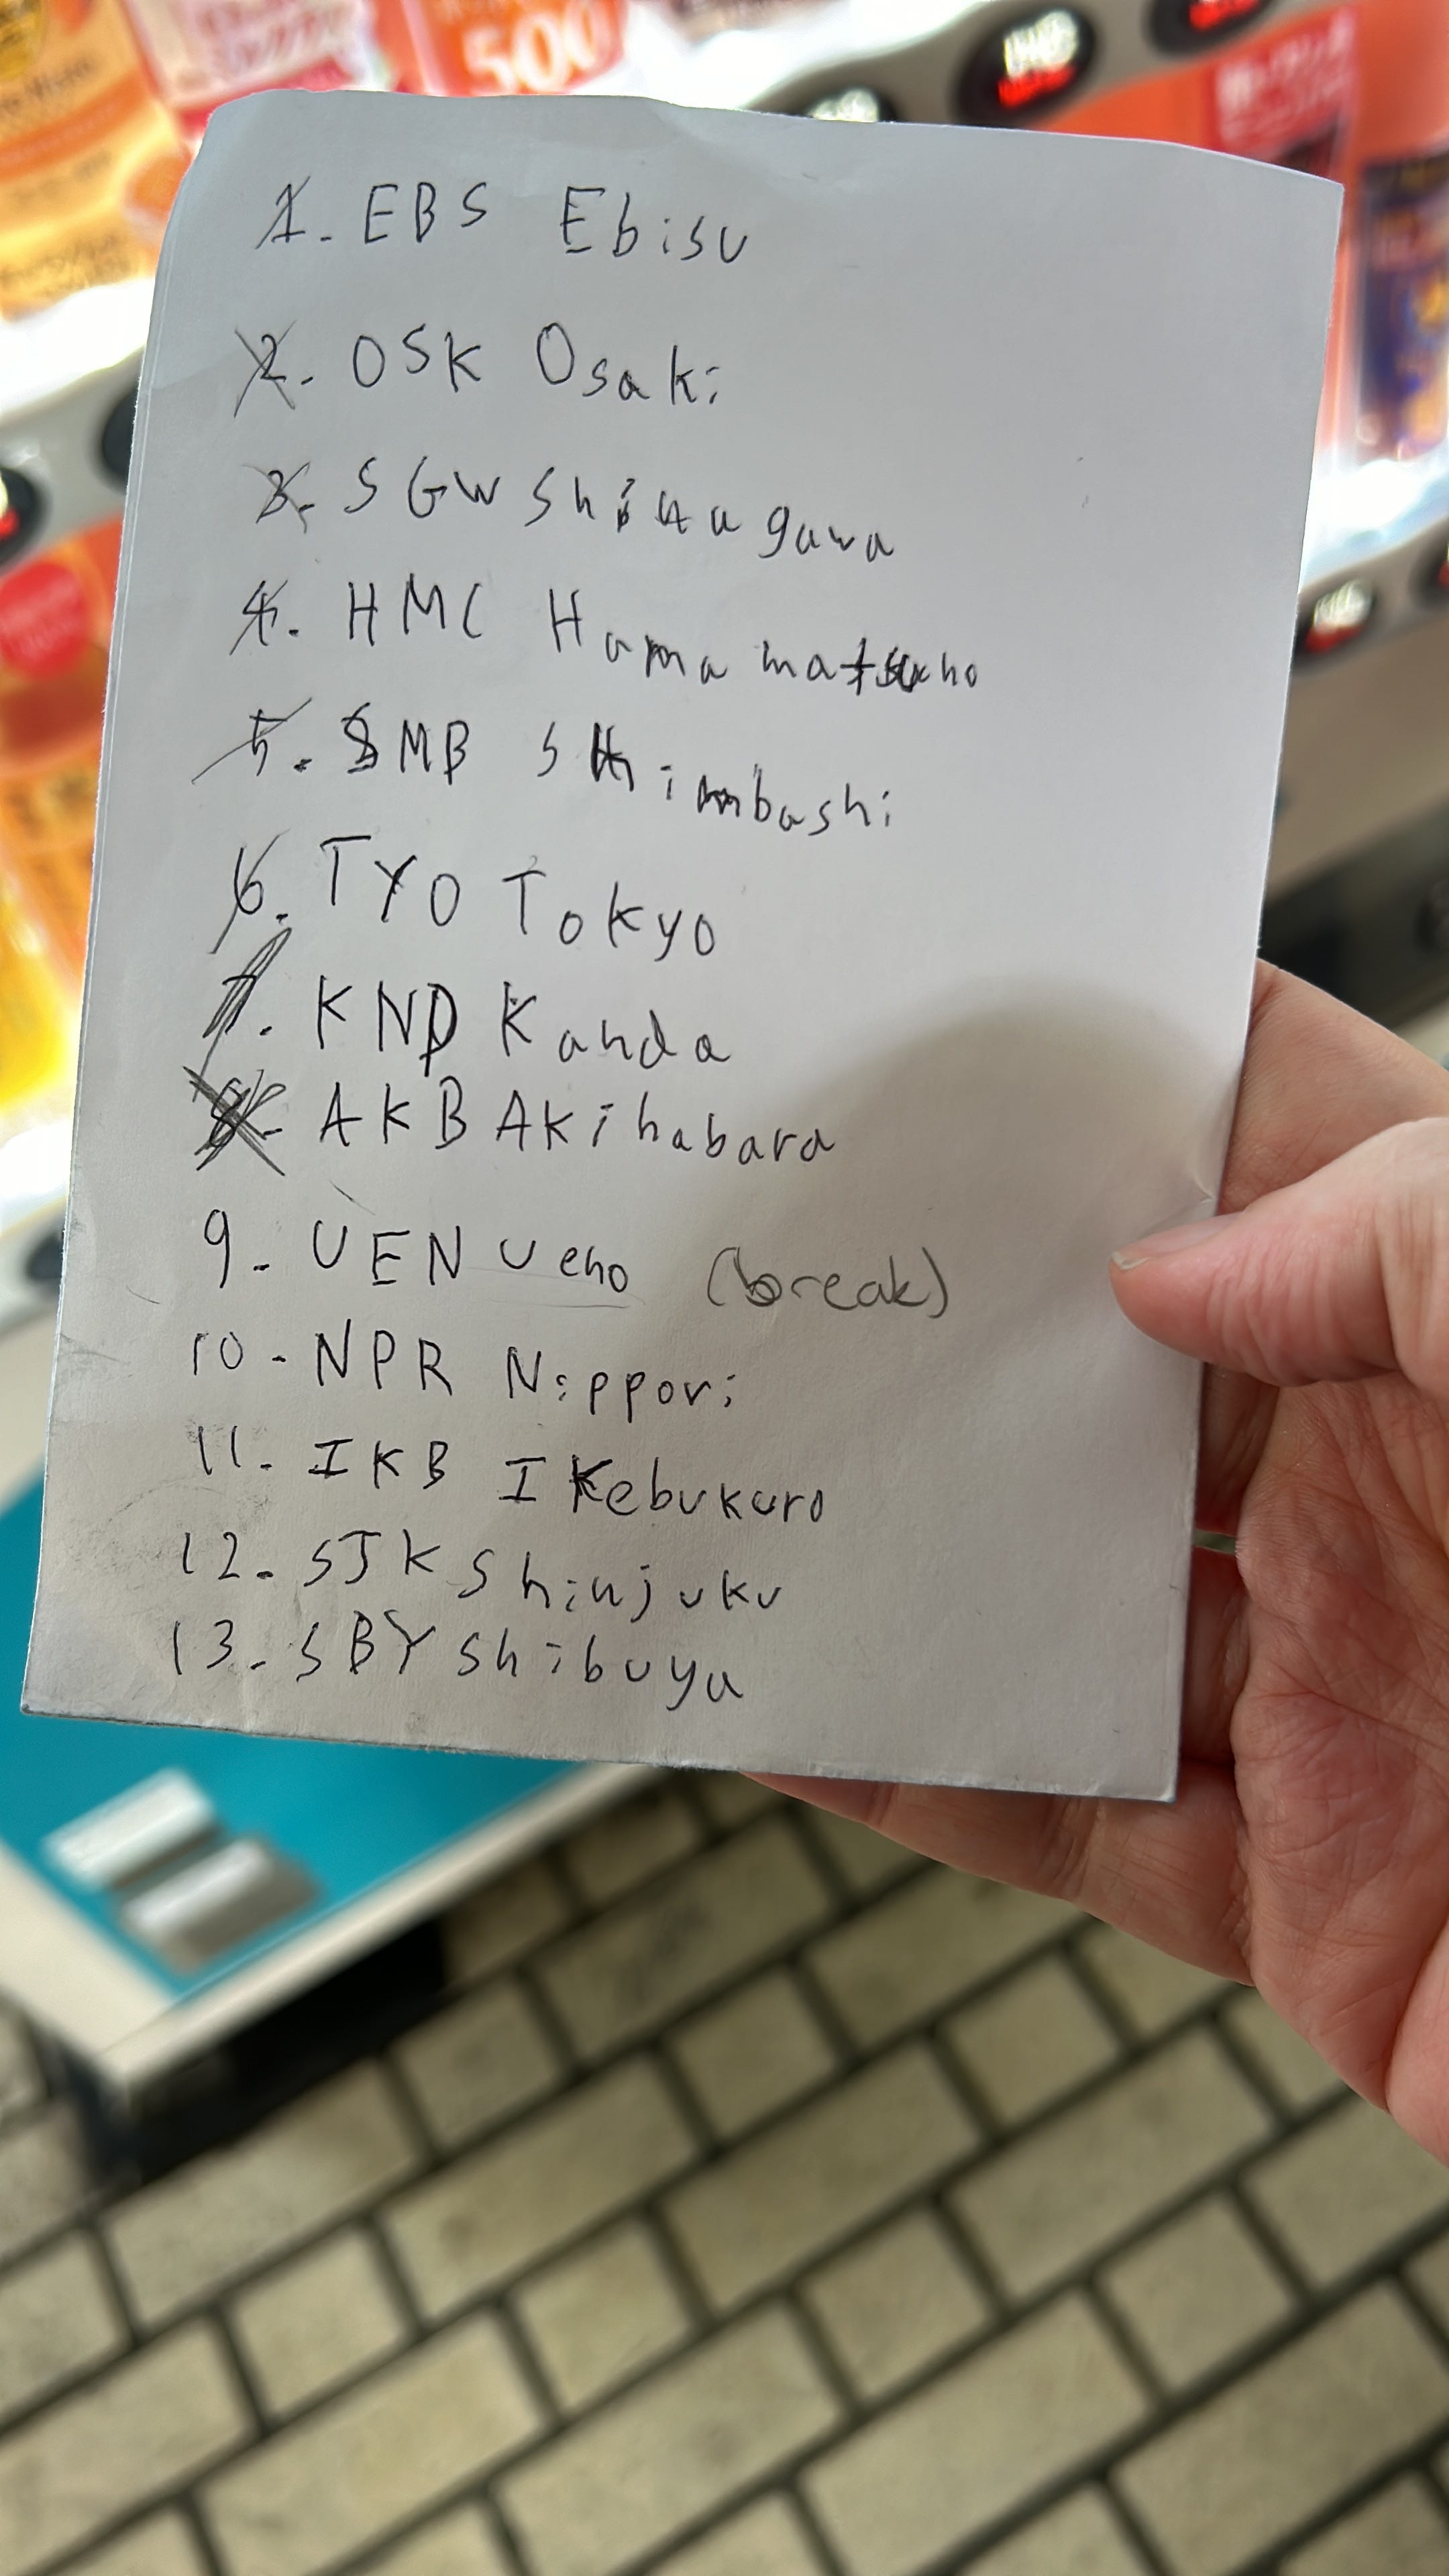 500
1. EBS Ebisu
2. OSK Osaki
3. SGW Shinagawa
4. HMC Hamamatsucho
5. SMB SHimbashi
6. TYO Tokyo
7. KND Kanda
8. AKB AKihabara
9. UEN Ueno (break)
10. NPR Nippori
11. IKB IKebukuro
12. SJK Shinjuku
13. SBY Shibuya